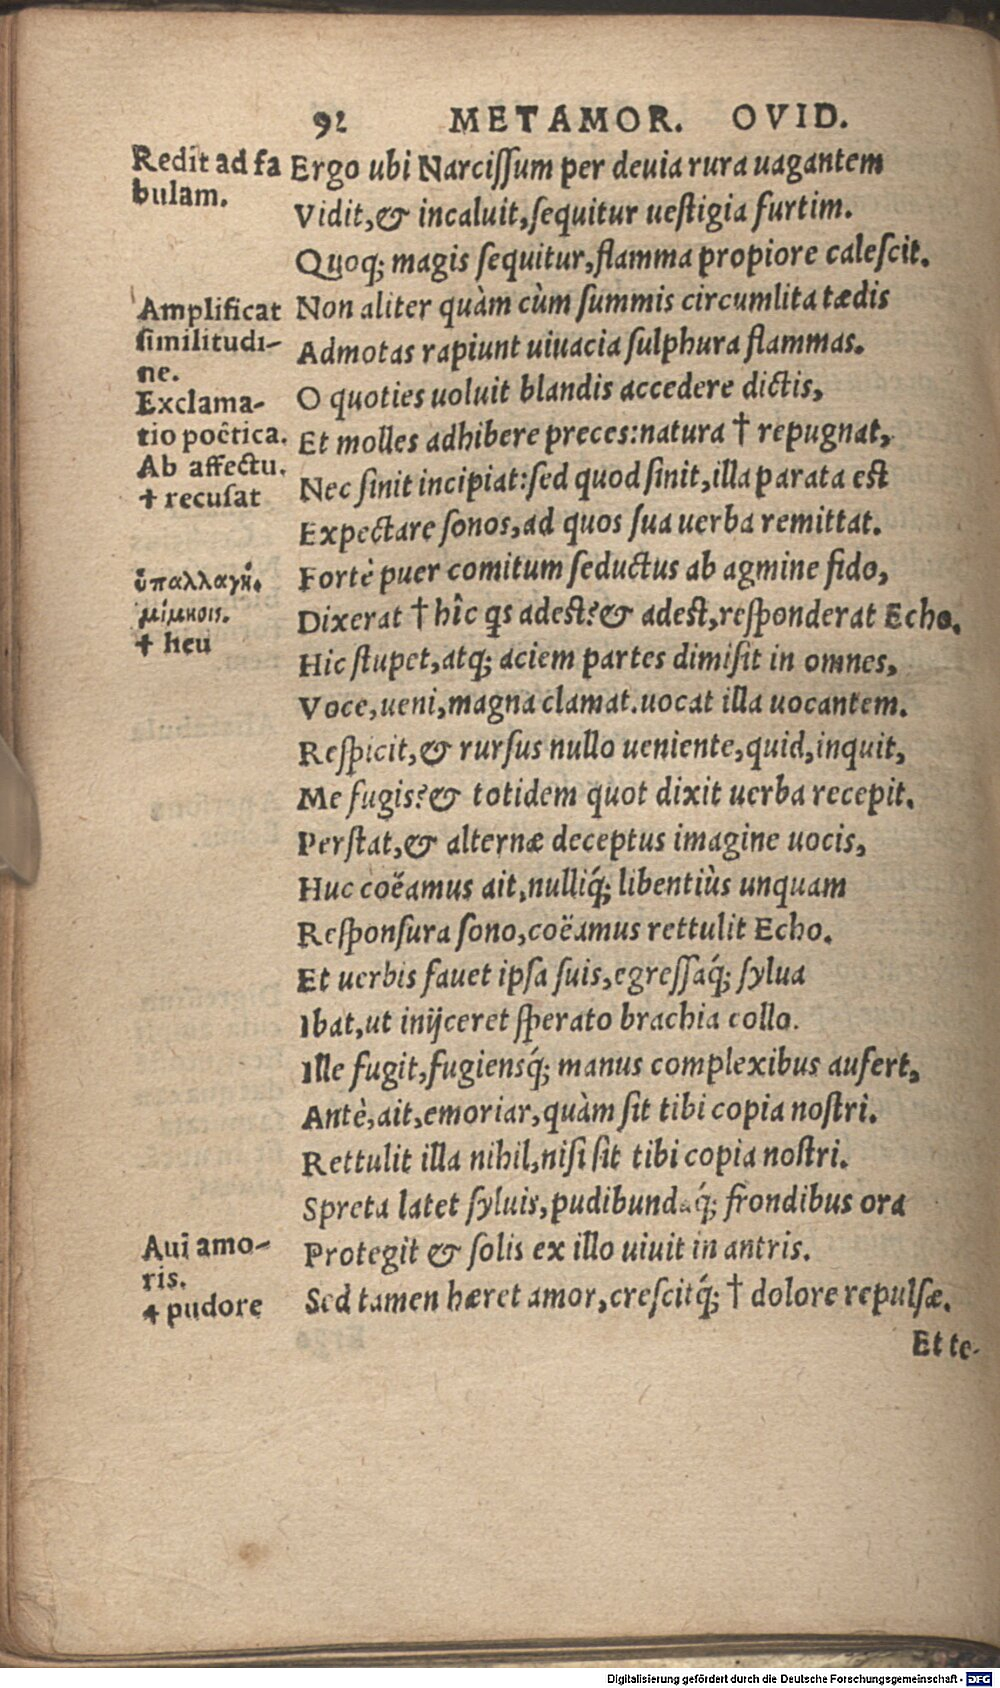 92 METAMOR. OVID.
Redit ad fa
bulam.
Ergo ubi Narcissum per deuia rura uagantem
Vidit, & incaluit, sequitur uestigia furtim.
Quoq; magis sequitur, flamma propiore calescit.
Amplificat
similitudi-
ne.
Non aliter quàm cùm summis circumlita tædis
Admotas rapiunt uiuacia sulphura flammas.
Exclama-
tio poëtica.
Ab affectu.
† recusat
O quoties uoluit blandis accedere dictis,
Et molles adhibere preces: natura † repugnat,
Nec sinit incipiat: sed quod sinit, illa parata est
Expectare sonos, ad quos sua uerba remittat.
ὑπαλλαγή.
μίμησις.
† heu
Fortè puer comitum seductus ab agmine fido,
Dixerat † hîc qs adest? & adest, responderat Echo.
Hic stupet, atq; aciem partes dimisit in omnes,
Voce, ueni, magna clamat. uocat illa uocantem.
Respicit, & rursus nullo ueniente, quid, inquit,
Me fugis? & totidem quot dixit uerba recepit.
Perstat, & alternæ deceptus imagine uocis,
Huc coëamus ait, nulliq́; libentiùs unquam
Responsura sono, coëamus rettulit Echo.
Et uerbis fauet ipsa suis, egressaq́; sylua
Ibat, ut inijceret sperato brachia collo.
Ille fugit, fugiensq́; manus complexibus aufert,
Antè, ait, emoriar, quàm sit tibi copia nostri.
Rettulit illa nihil, nisi sit tibi copia nostri.
Spreta latet syluis, pudibundaq́; frondibus ora
Protegit & solis ex illo uiuit in antris.
Auî amo-
ris.
† pudore
Sed tamen hæret amor, crescitq́; † dolore repulsæ.
Et te-
Digitalisierung gefördert durch die Deutsche Forschungsgemeinschaft - DFG